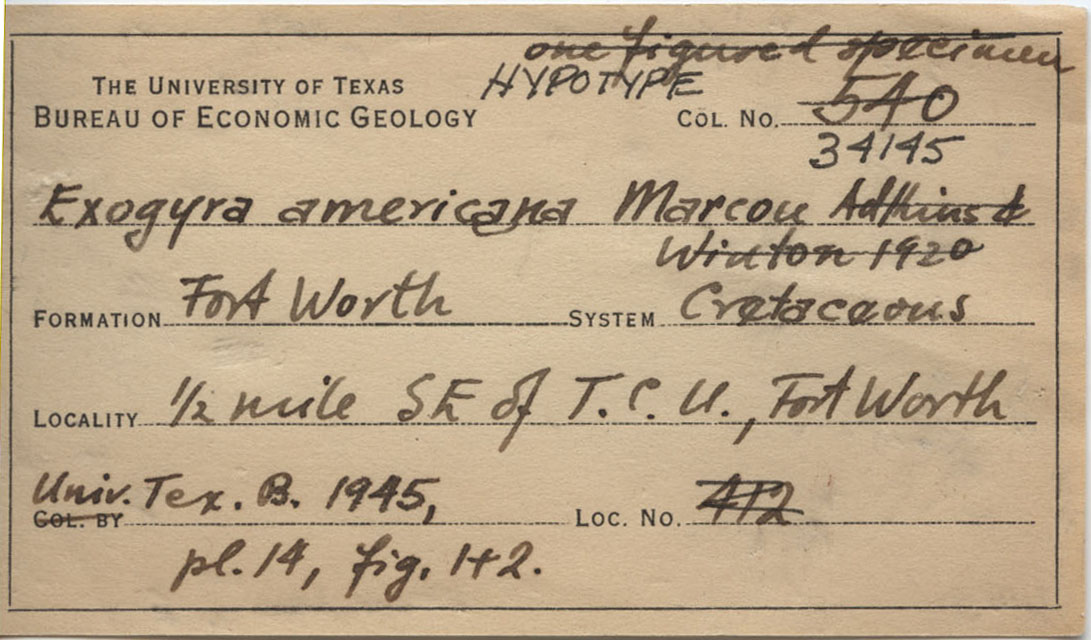 one figured specimen
THE UNIVERSITY OF TEXAS HYPOTYPE
BUREAU OF ECONOMIC GEOLOGY COL. NO. 540
34145
Exogyra americana Marcou Adkins &
Winton 1920
FORMATION Fort Worth SYSTEM Cretaceous
LOCALITY 1/2 mile SE of T.C.U., Fort Worth
Univ. Tex. B. 1945,
COL. BY LOC. NO. 412
pl. 14, fig. 1+2.